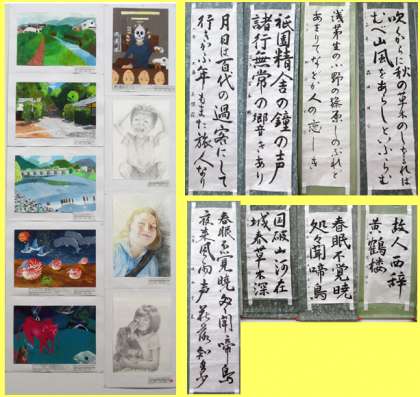 吹くからに秋の草木のしをるれば
むべ山風をあらしといふらむ
浅茅生の小野の篠原しのぶれど
あまりてなどか人の恋しき
祇園精舎の鐘の声
諸行無常の響きあり
月日は百代の過客にして
行きかふ年もまた旅人なり
故人西辞
黄鶴楼
春眠不覚暁
処々聞啼鳥
国破山河在
城春草木深
春眠不覚暁処々聞啼鳥
夜来風雨声花落知多少